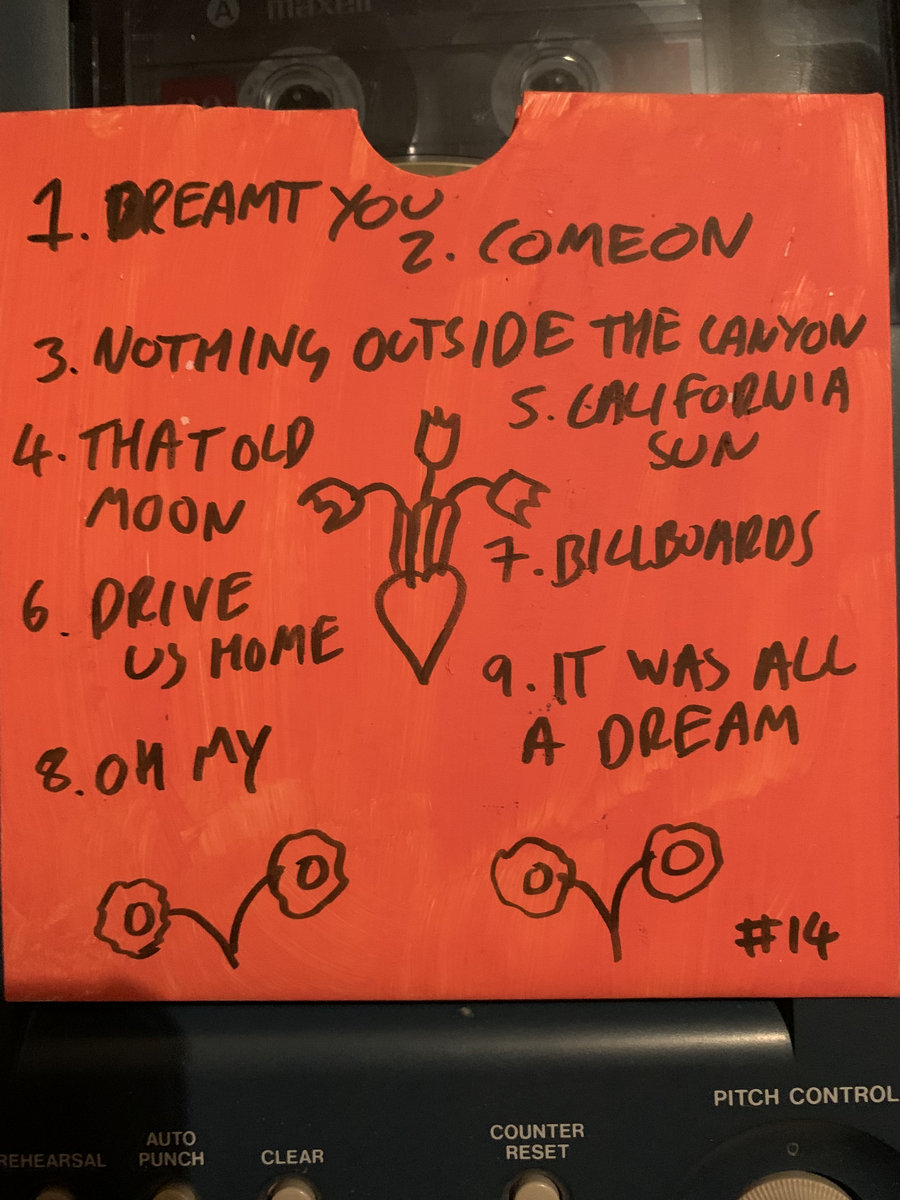 A maxell
1. DREAMT YOU
2. COMEON
3. NOTHING OUTSIDE THE CANYON
4. THAT OLD
MOON
5. CALIFORNIA
SUN
6. DRIVE
US HOME
7. BILLBOARDS
8. OH MY
9. IT WAS ALL
A DREAM
#14
PITCH CONTROL
REHEARSAL
AUTO
PUNCH
CLEAR
COUNTER
RESET